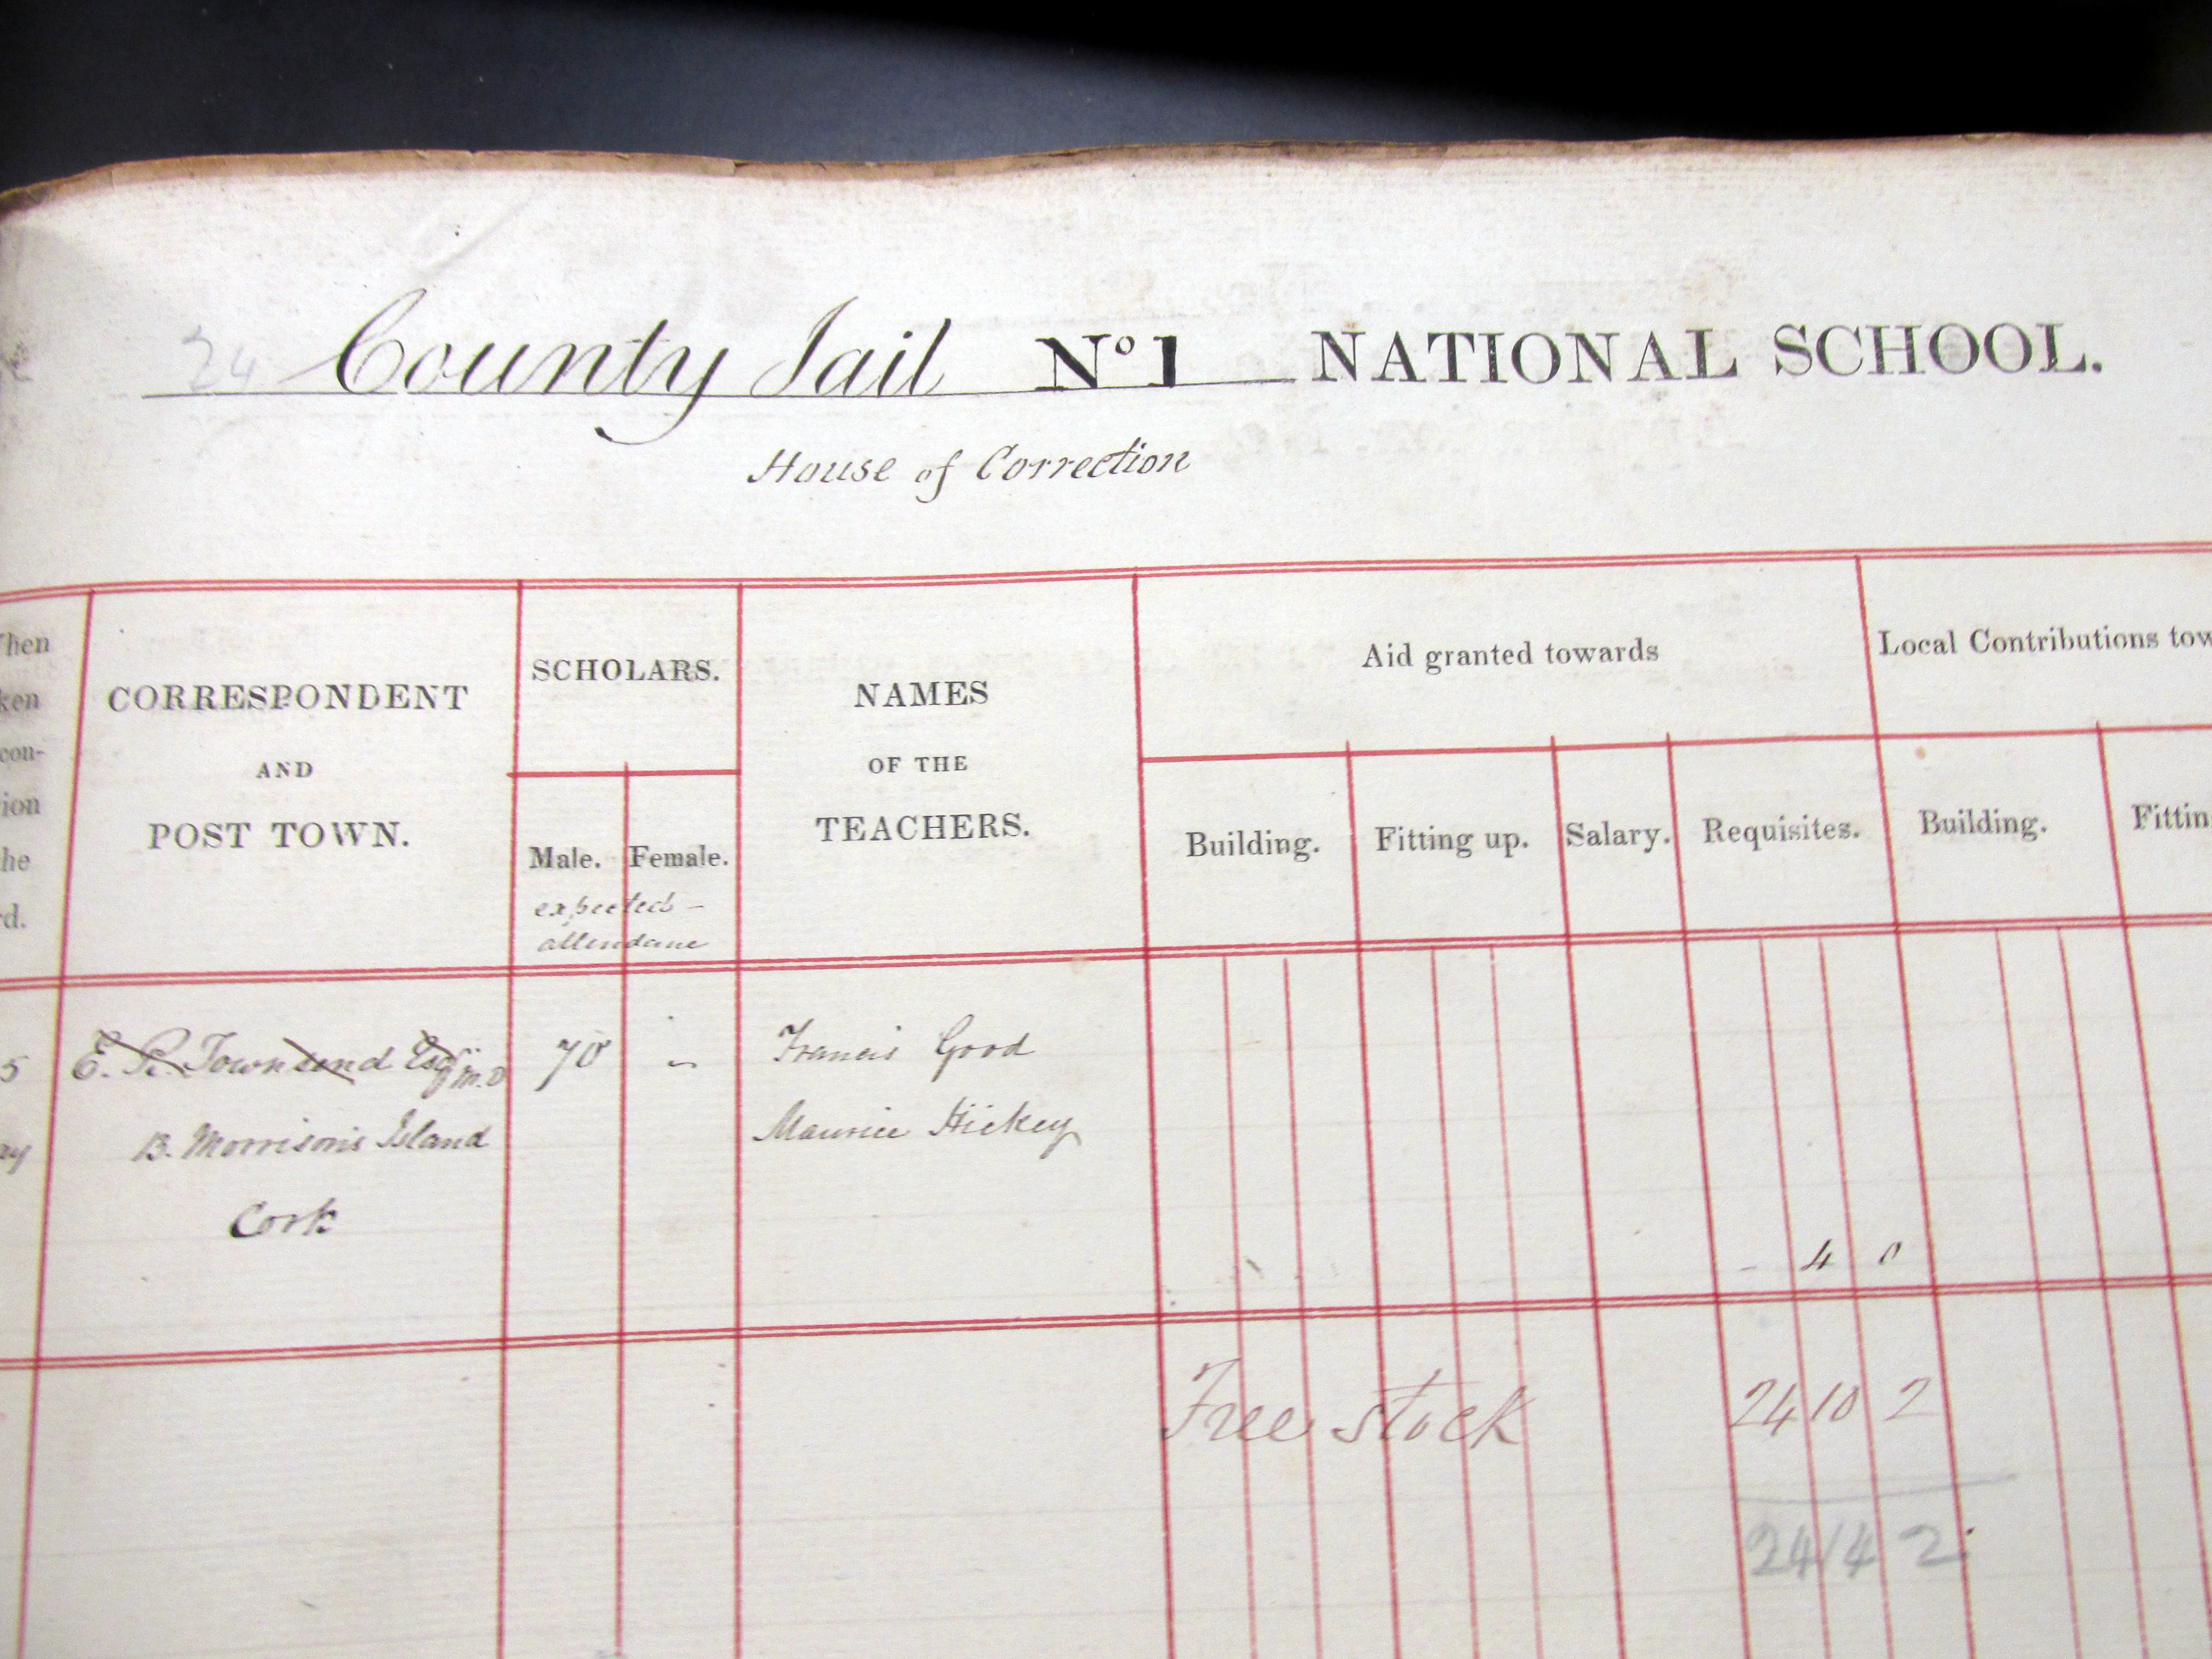 24 County Jail No 1 NATIONAL SCHOOL.
House of Correction
CORRESPONDENT
AND
POST TOWN.
SCHOLARS.
Male. Female.
expected -
attendance
NAMES
OF THE
TEACHERS.
Aid granted towards
Building. Fitting up. Salary. Requisites.
Local Contributions tow
Building. Fittin
hen
ken
con-
ion
he
rd.
5 E. R. Townsend Esqr M.D 70 - Francis Good
ay 13. Morrison's Island Maurice Hickey
Cork
- 4 0
Free stock 24 10 2
24 14 2